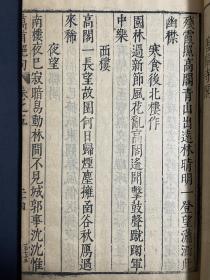 殘霞照高閣青山出遠林晴明一登望瀟灑此
幽襟
寒食後北樓作
園林過新節風花亂高閣遙聞擊鼓聲蹴鞠軍
中樂
西樓
高閣一長望故園何日歸煙塵擁函谷秋鴈過
來稀
夜望
南樓夜已寂暗鳥動林間不見城郭事沈沈惟
萬首絕句 卷之五